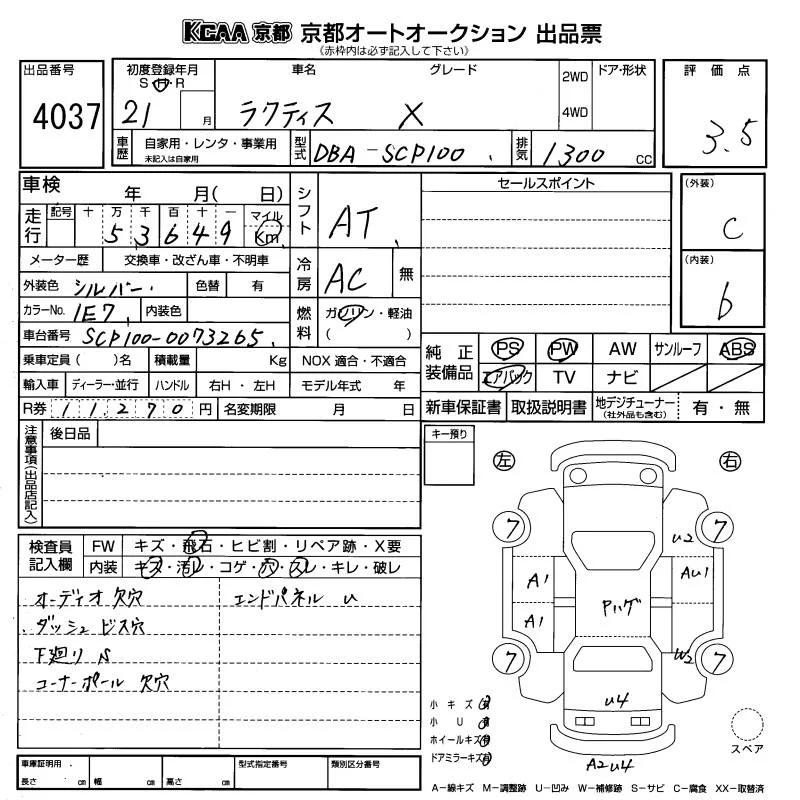 KCAA 京都 京都オートオークション 出品票
(赤枠内は必ず記入して下さい)
出品番号 4037
初度登録年月 S H R 21 月
車名 ラクティス
グレード X
2WD 4WD
ドア・形状
評価点 3.5
車歴 自家用・レンタ・事業用 未記入は自家用
型式 DBA-SCP100
排気 1300 cc
車検 年 月( 日)
走行 記号 十 万 千 百 十 一 マイル Km
5 3 6 4 9
メーター歴 交換車・改ざん車・不明車
外装色 シルバー 色替 有
カラーNo. 1E7 内装色
車台番号 SCP100-0073265
乗車定員 ( )名 積載量 Kg
輸入車 ディーラー・並行 ハンドル 右H・左H
R券 11,270 円 名変期限 月 日
シフト AT
冷房 AC 無
燃料 ガソリン・軽油 ( )
NOX 適合・不適合
モデル年式 年
セールスポイント
(外装) C
(内装) b
純正装備品 PS PW AW サンルーフ ABS
エアバック TV ナビ
新車保証書 取扱説明書 地デジチューナー (社外品も含む) 有・無
注意事項(出品店記入) 後日品
キー預り
左 右
検査員記入欄 FW キズ・飛石・ヒビ割・リペア跡・X要
内装 キズ・汚レ・コゲ・穴・スレ・キレ・破レ
オーディオ欠穴 エンドパネル U
ダッシュ ビス穴
下廻り S
コーナーポール 欠穴
7 7
U2
A1 AU1
Pハゲ
A1
7 7
W2
U4
A2U4
小キズ 有
小U 有
ホイールキズ 有
ドアミラーキズ 有
スペア
車庫証明用. 長さ cm 幅 cm 高さ cm
型式指定番号 類別区分番号
A-線キズ M-調整跡 U-凹み W-補修跡 S-サビ C-腐食 XX-取替済